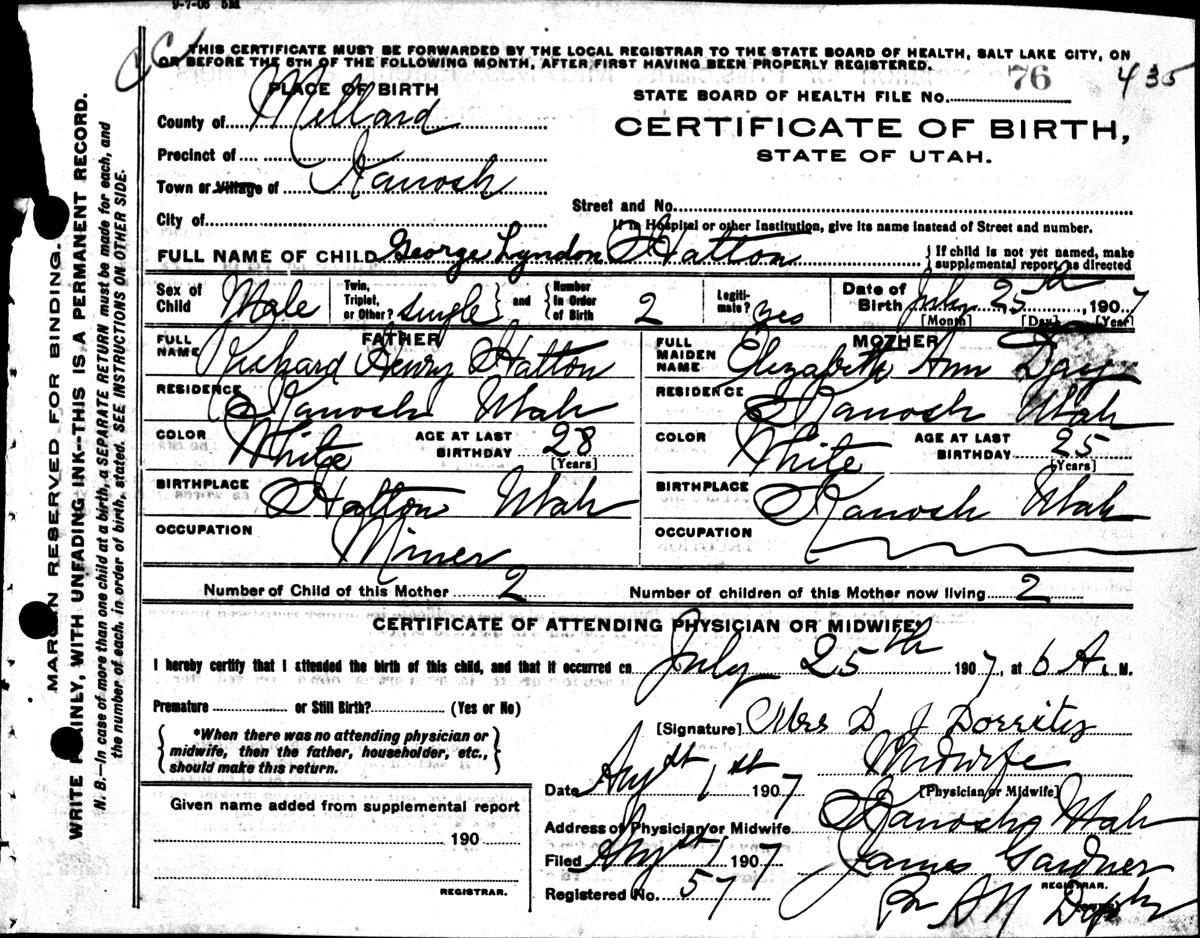 9-7-06 5M
THIS CERTIFICATE MUST BE FORWARDED BY THE LOCAL REGISTRAR TO THE STATE BOARD OF HEALTH, SALT LAKE CITY, ON
OR BEFORE THE 5TH OF THE FOLLOWING MONTH, AFTER FIRST HAVING BEEN PROPERLY REGISTERED.
PLACE OF BIRTH
STATE BOARD OF HEALTH FILE No. 76 435
County of Millard
CERTIFICATE OF BIRTH,
STATE OF UTAH.
Precinct of
Town or Village of Kanosh
Street and No.
City of
If in Hospital or other Institution, give its name instead of Street and number.
FULL NAME OF CHILD George Lyndon Hatton {If child is not yet named, make supplemental report, as directed
Sex of Child Male Twin, Triplet, or Other? single } and { Number in Order of Birth 2 Legitimate? yes Date of Birth July 25th, 1907
[Month] [Day] [Year]
FATHER
FULL NAME Richard Henry Hatton
RESIDENCE Kanosh Utah
COLOR White AGE AT LAST BIRTHDAY 28
[Years]
BIRTHPLACE Hatton Utah
OCCUPATION Miner
MOTHER
FULL MAIDEN NAME Elizabeth Ann Day
RESIDENCE Kanosh Utah
COLOR White AGE AT LAST BIRTHDAY 25
[Years]
BIRTHPLACE Kanosh Utah
OCCUPATION
Number of Child of this Mother 2 Number of children of this Mother now living 2
CERTIFICATE OF ATTENDING PHYSICIAN OR MIDWIFE*
I hereby certify that I attended the birth of this child, and that it occurred on July 25th 1907, at 6 A. M.
Premature or Still Birth? (Yes or No)
[Signature] Mrs D J Dorrity
{ *When there was no attending physician or
midwife, then the father, householder, etc.,
should make this return. }
Midwife
[Physician or Midwife]
Date Augst 1st 1907
Address of Physician or Midwife Kanosh Utah
Filed Augst 1 1907 James Gardner
REGISTRAR.
Registered No. 57
Given name added from supplemental report
190
REGISTRAR.
MARGIN RESERVED FOR BINDING.
WRITE PLAINLY, WITH UNFADING INK--THIS IS A PERMANENT RECORD.
N. B.—In case of more than one child at a birth, a SEPARATE RETURN must be made for each, and
the number of each, in order of birth, stated. SEE INSTRUCTIONS ON OTHER SIDE.